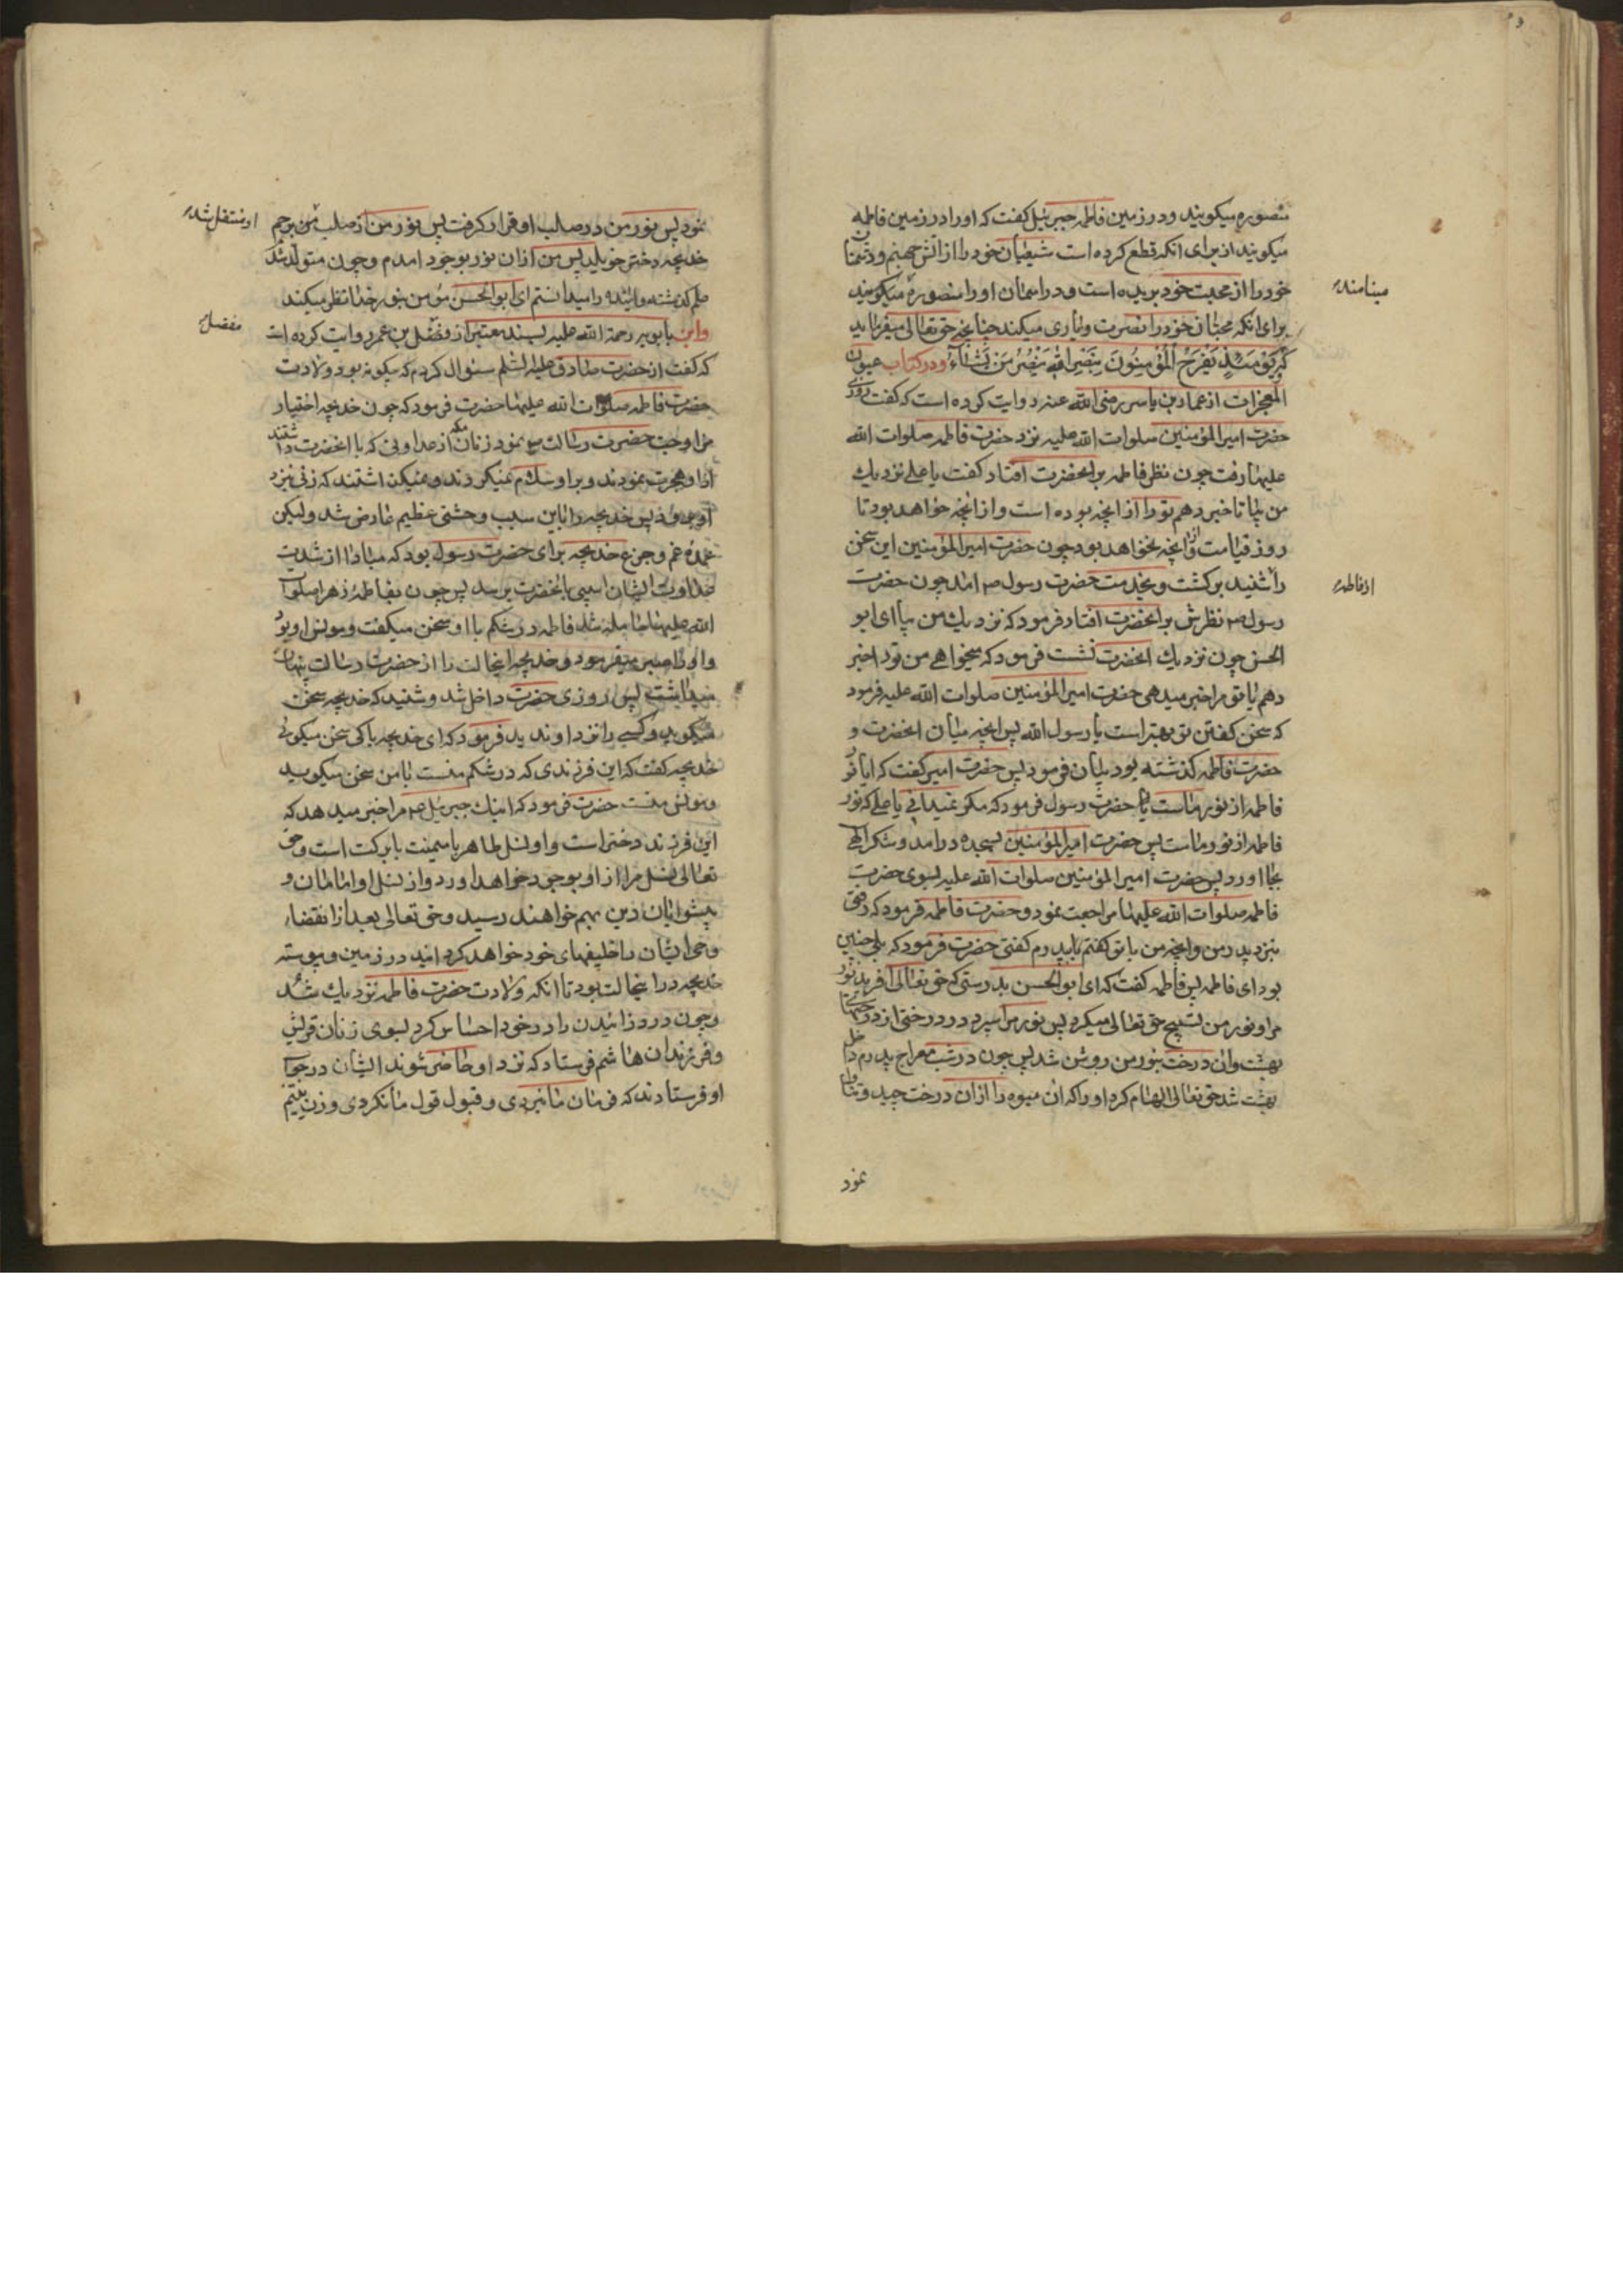 منصوره میکویند و در زمین فاطمه جبرئیل کفت که او را در زمین فاطمه
میکویند از برای انکه قطع کرده است شیعیان خود را از اتش جهنم و دشمنان
خود را از محبت خود بریده است و در اسمان او را منصوره میکویند
مینامند
برای انکه محبان خود را نصرت و یاری میکند چنانچه حق تعالی میفرماید
که یَوْمَئِذٍ یَفْرَحُ الْمُؤْمِنُونَ بِنَصْرِ اللّهِ یَنْصُرُ مَنْ یَشَاءُ و در کتاب عیون
المعجزات از عمار بن یاسر رضی الله عنه روایت کرده است که کفت روزی
حضرت امیر المؤمنین صلوات الله علیه نزد حضرت فاطمه صلوات الله
علیها رفت چون نظر فاطمه بر انحضرت افتاد کفت یا علی نزدیك
من بیا تا خبر دهم تو را از انچه بوده است و از انچه خواهد بود تا
روز قیامت و از انچه نخواهد بود چون حضرت امیر المؤمنین این سخن
از فاطمه
را شنید برکشت و بخدمت حضرت رسول ص امد چون حضرت
رسول ص نظرش بر انحضرت افتاد فرمود که نزدیك من بیا ای ابو
الحسن چون نزدیك انحضرت نشست فرمود که میخواهی من تو را خبر
دهم یا تو مرا خبر میدهی حضرت امیر المؤمنین صلوات الله علیه فرمود
که سخن کفتن تو بهتر است یا رسول الله پس انچه میان انحضرت و
حضرت فاطمه کذشته بود بیان فرمود پس حضرت امیر کفت که ایا نور
فاطمه از نور ماست یا حضرت رسول فرمود که مکر نمیدانی یا علی که نور
فاطمه از نور ماست پس حضرت امیر المؤمنین بسجده درامد و شکر الهی
بجا اورد پس حضرت امیر المؤمنین صلوات الله علیه بسوی حضرت
فاطمه صلوات الله علیها مراجعت نمود و حضرت فاطمه فرمود که رفتی
بنزد پدر من و انچه من با تو کفتم با پدرم کفتی حضرت فرمود که بلی چنین
بود ای فاطمه پس فاطمه کفت که ای ابو الحسن بدرستی که حق تعالی افرید نور
مرا و نور من تسبیح حق تعالی میکرد پس نور مرا سپرد در درختی از درختهای
بهشت و ان درخت بنور من روشن شد پس چون در شب معراج پدرم داخل
بهشت شد حق تعالی الهام کرد او را که ان میوه را از ان درخت چید و تناول
نمود
نمود پس نور من در صلب او قرار کرفت پس نور من از صلب من برحم
او منتقل شد
خدیجه دختر خویلد پس من از ان نور بوجود امدم و چون متولد شد
علم کذشته و اینده را میدانستم ای ابو الحسن مؤمن بنور خدا نظر میکند
و ابن بابویه رحمة الله علیه بسند معتبر از مفضل بن عمر روایت کرده است
مفضل
که کفت از حضرت صادق علیه السلم سئوال کردم که چکونه بود ولادت
حضرت فاطمه صلوات الله علیها حضرت فرمود که چون خدیجه اختیار
مزاوجت حضرت رسالت نمود زنان مکه از عداوتی که با انحضرت داشتند
از او هجرت نمودند و بر او سلام نمیکردند و نمیکذاشتند که زنی نزد
او برود پس خدیجه را باین سبب وحشتی عظیم عارض شد ولیکن
عمده غم و جزع خدیجه برای حضرت رسول بود که مبادا از شدت
عداوت ایشان اسیبی بانحضرت برسد پس چون بفاطمه زهرا صلوات
الله علیها حامله شد فاطمه در شکم با او سخن میکفت و مونس او بود
و او را صبر میفرمود و خدیجه اینحالت را از حضرت رسالت پنهان
میداشت پس روزی حضرت داخل شد و شنید که خدیجه سخن
میکوید و کسی را نزد او ندید فرمود که ای خدیجه با کی سخن میکوئی
خدیجه کفت که این فرزندی که در شکم منست با من سخن میکوید
و مونس منست حضرت فرمود که اینك جبرئیل ص مرا خبر میدهد که
این فرزند دختر است و او نسل طاهر با میمنت با برکت است و حق
تعالی نسل مرا از او بوجود خواهد اورد و از نسل او امامان و
پیشوایان دین بهم خواهند رسید و حق تعالی بعد از انقضاء
وحی ایشان را خلیفهای خود خواهد کردانید در زمین و پیوسته
خدیجه در اینحالت بود تا انکه ولادت حضرت فاطمه نزدیك شد
و چون درد زائیدن را در خود احساس کرد بسوی زنان قریش
و فرزندان هاشم فرستاد که نزد او حاضر شوند ایشان در جواب
او فرستادند که فرمان ما نبردی و قبول قول ما نکردی و زن یتیم